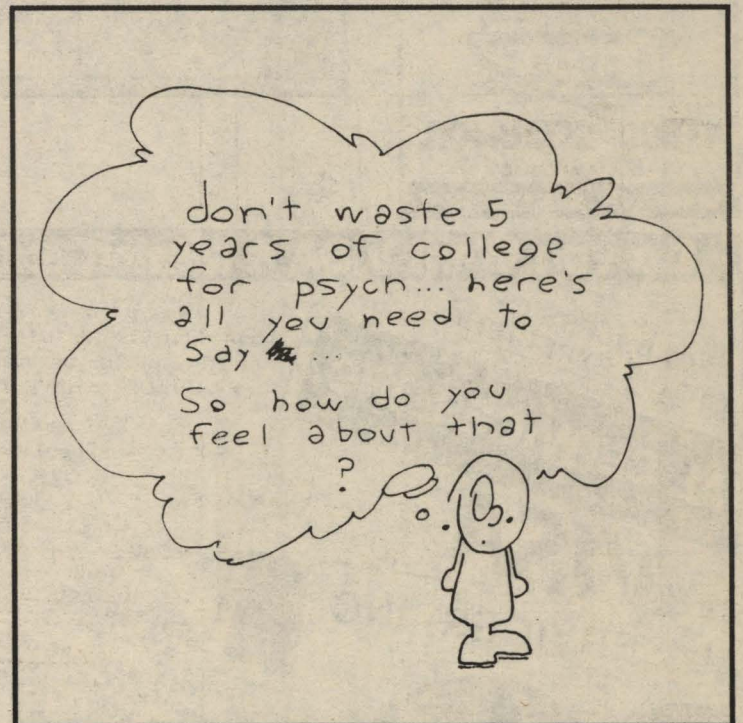 don't waste 5
years of college
for psych... here's
all you need to
Say ...
So how do you
feel about that
?